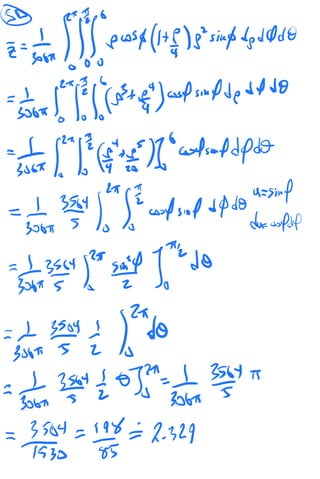 50
z̄ = 1/306π ∫₀^2π ∫₀^π/2 ∫₀^6 ρcosϕ (1+ρ/4) ρ² sinϕ dρ dϕ dθ
= 1/306π ∫₀^2π ∫₀^π/2 ∫₀^6 (ρ³+ρ⁴/4) cosϕ sinϕ dρ dϕ dθ
= 1/306π ∫₀^2π ∫₀^π/2 (ρ⁴/4+ρ⁵/20)]₀^6 cosϕ sinϕ dϕ dθ
= 1/306π 3564/5 ∫₀^2π ∫₀^π/2 cosϕ sinϕ dϕ dθ u=sinϕ
du=cosϕdϕ
= 1/306π 3564/5 ∫₀^2π sin²ϕ/2 ]₀^π/2 dθ
= 1/306π 3564/5 1/2 ∫₀^2π dθ
= 1/306π 3564/5 1/2 θ]₀^2π = 1/306π 3564/5 π
= 3564/1530 = 198/85 ≐ 2.329